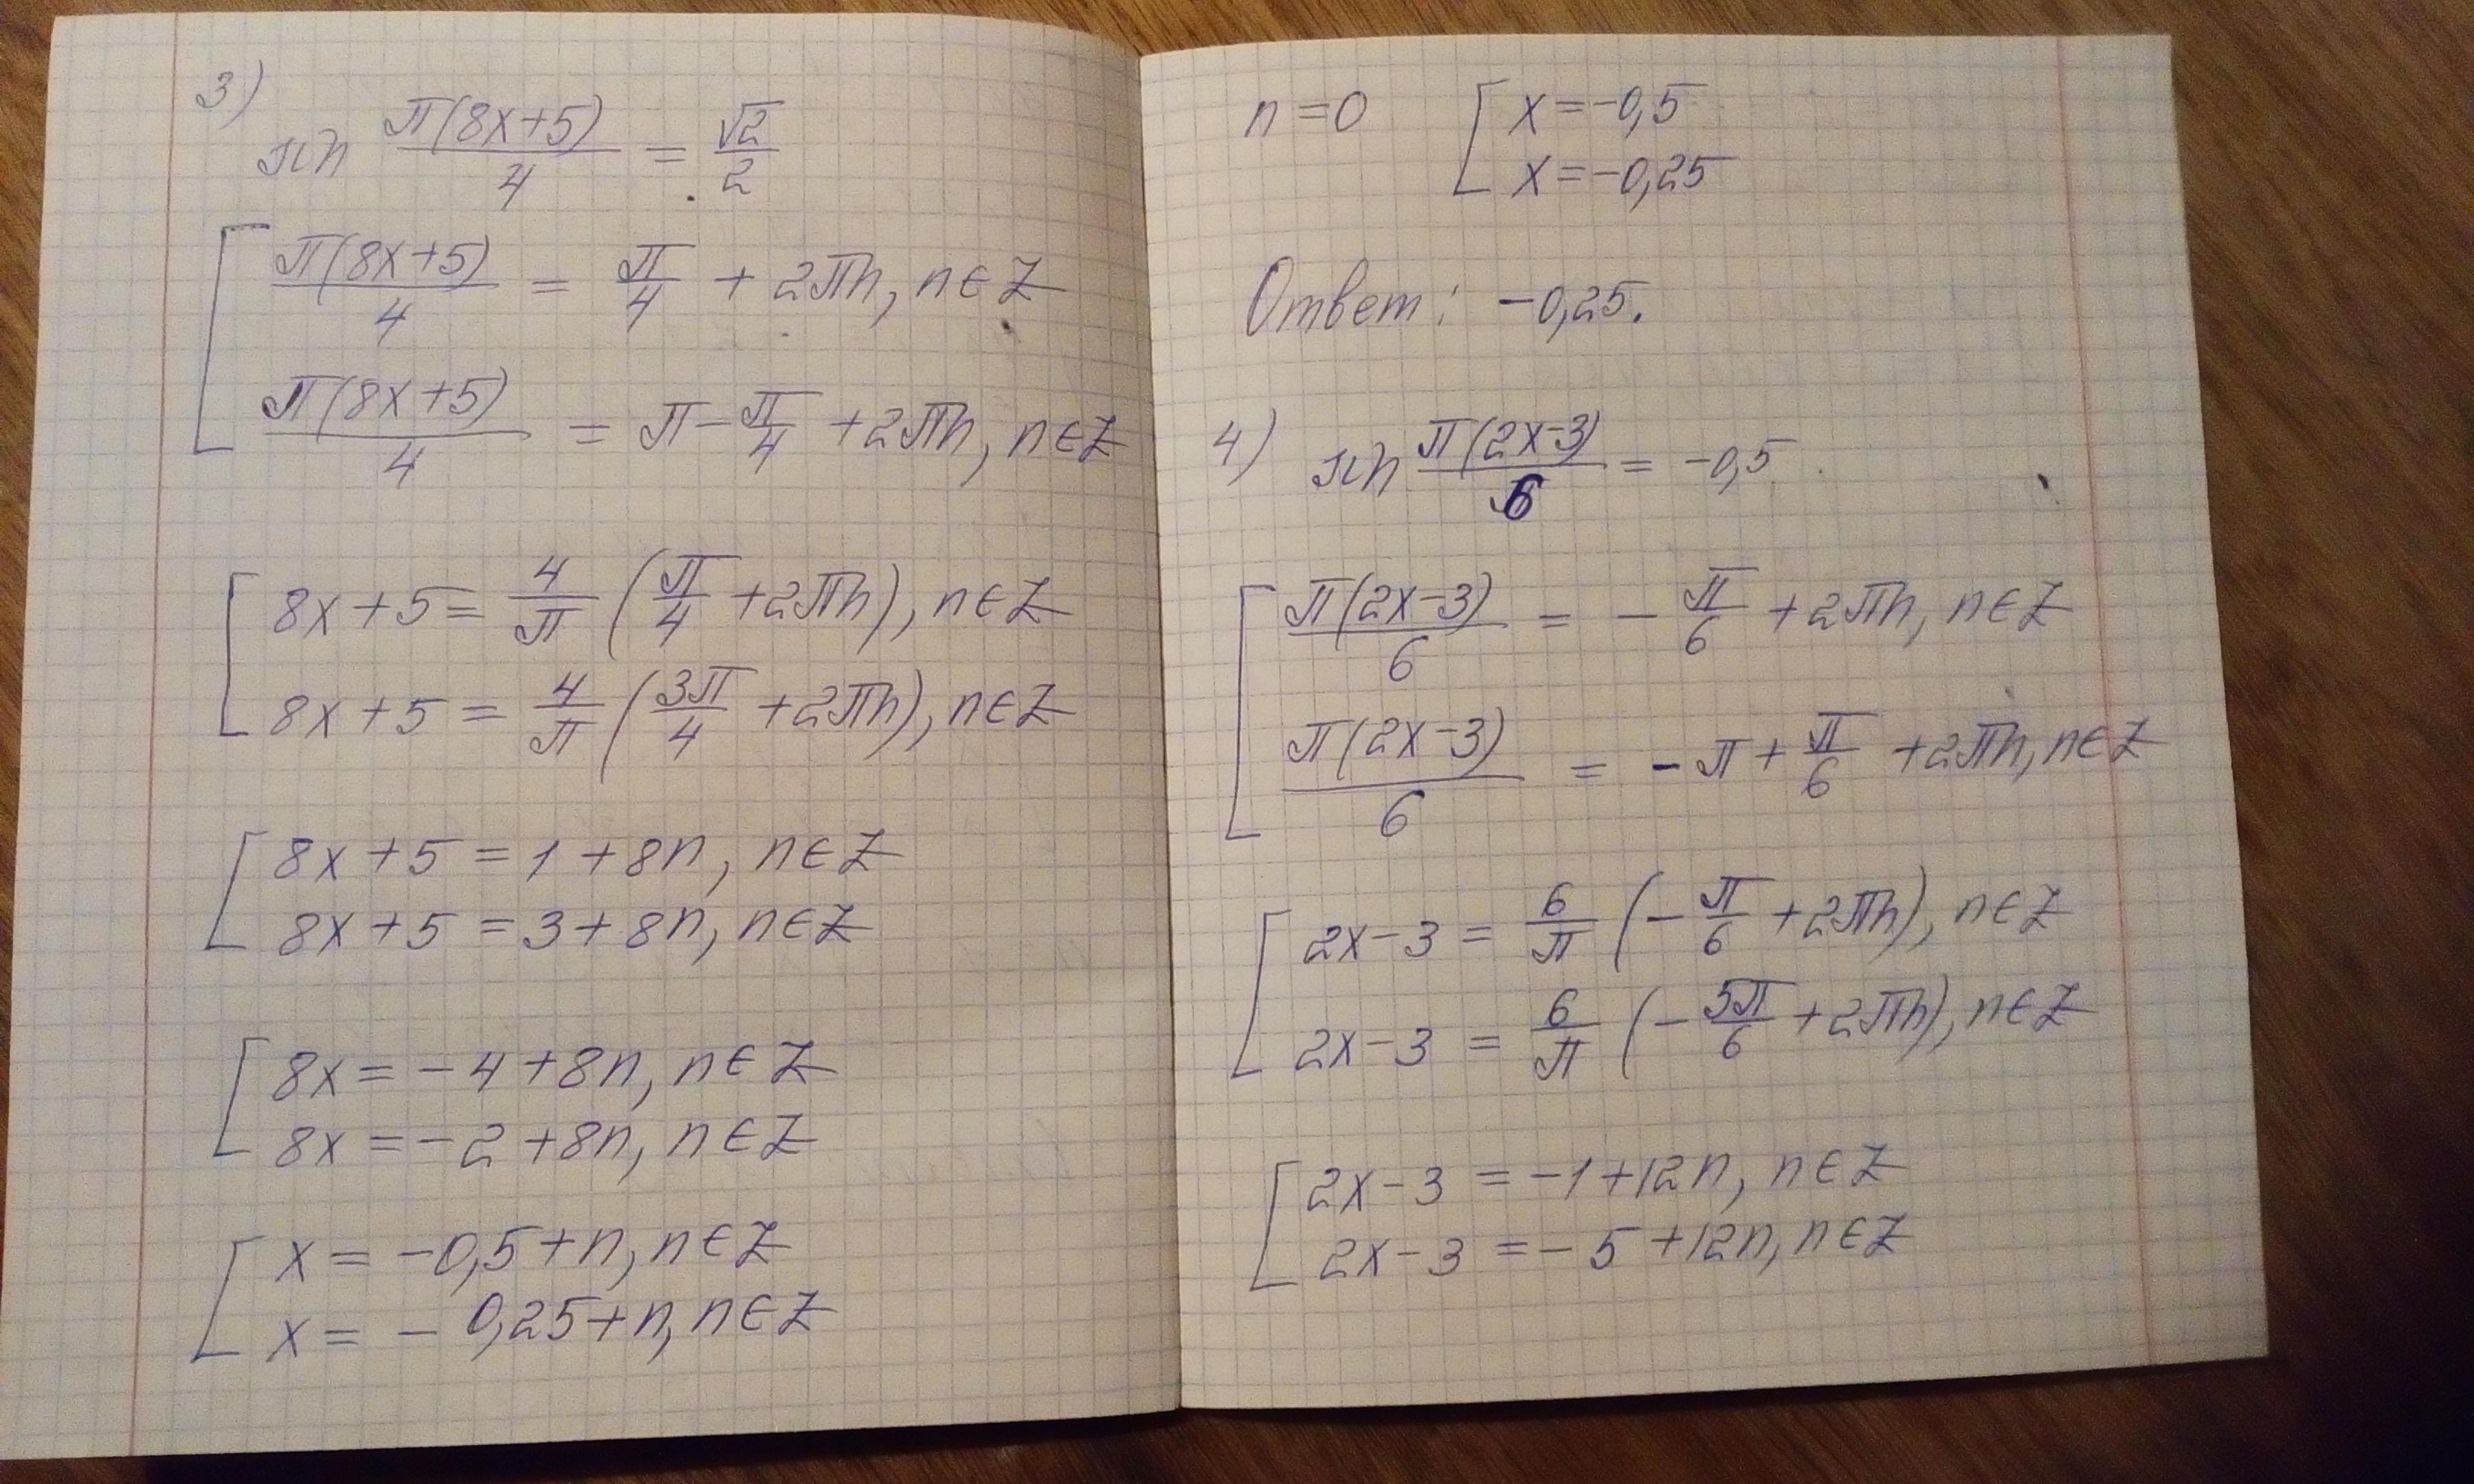 3)
sin π(8x+5)/4 = √2/2
[ π(8x+5)/4 = π/4 + 2πn, n∈Z
π(8x+5)/4 = π - π/4 + 2πn, n∈Z
[ 8x+5 = 4/π (π/4 + 2πn), n∈Z
8x+5 = 4/π (3π/4 + 2πn), n∈Z
[ 8x+5 = 1+8n, n∈Z
8x+5 = 3+8n, n∈Z
[ 8x = -4+8n, n∈Z
8x = -2+8n, n∈Z
[ x = -0,5+n, n∈Z
x = -0,25+n, n∈Z
n=0 [ x=-0,5
x=-0,25
Ответ: -0,25.
4) sin π(2x-3)/6 = -0,5
[ π(2x-3)/6 = -π/6 + 2πn, n∈Z
π(2x-3)/6 = -π + π/6 + 2πn, n∈Z
[ 2x-3 = 6/π (-π/6 + 2πn), n∈Z
2x-3 = 6/π (-5π/6 + 2πn), n∈Z
[ 2x-3 = -1+12n, n∈Z
2x-3 = -5+12n, n∈Z